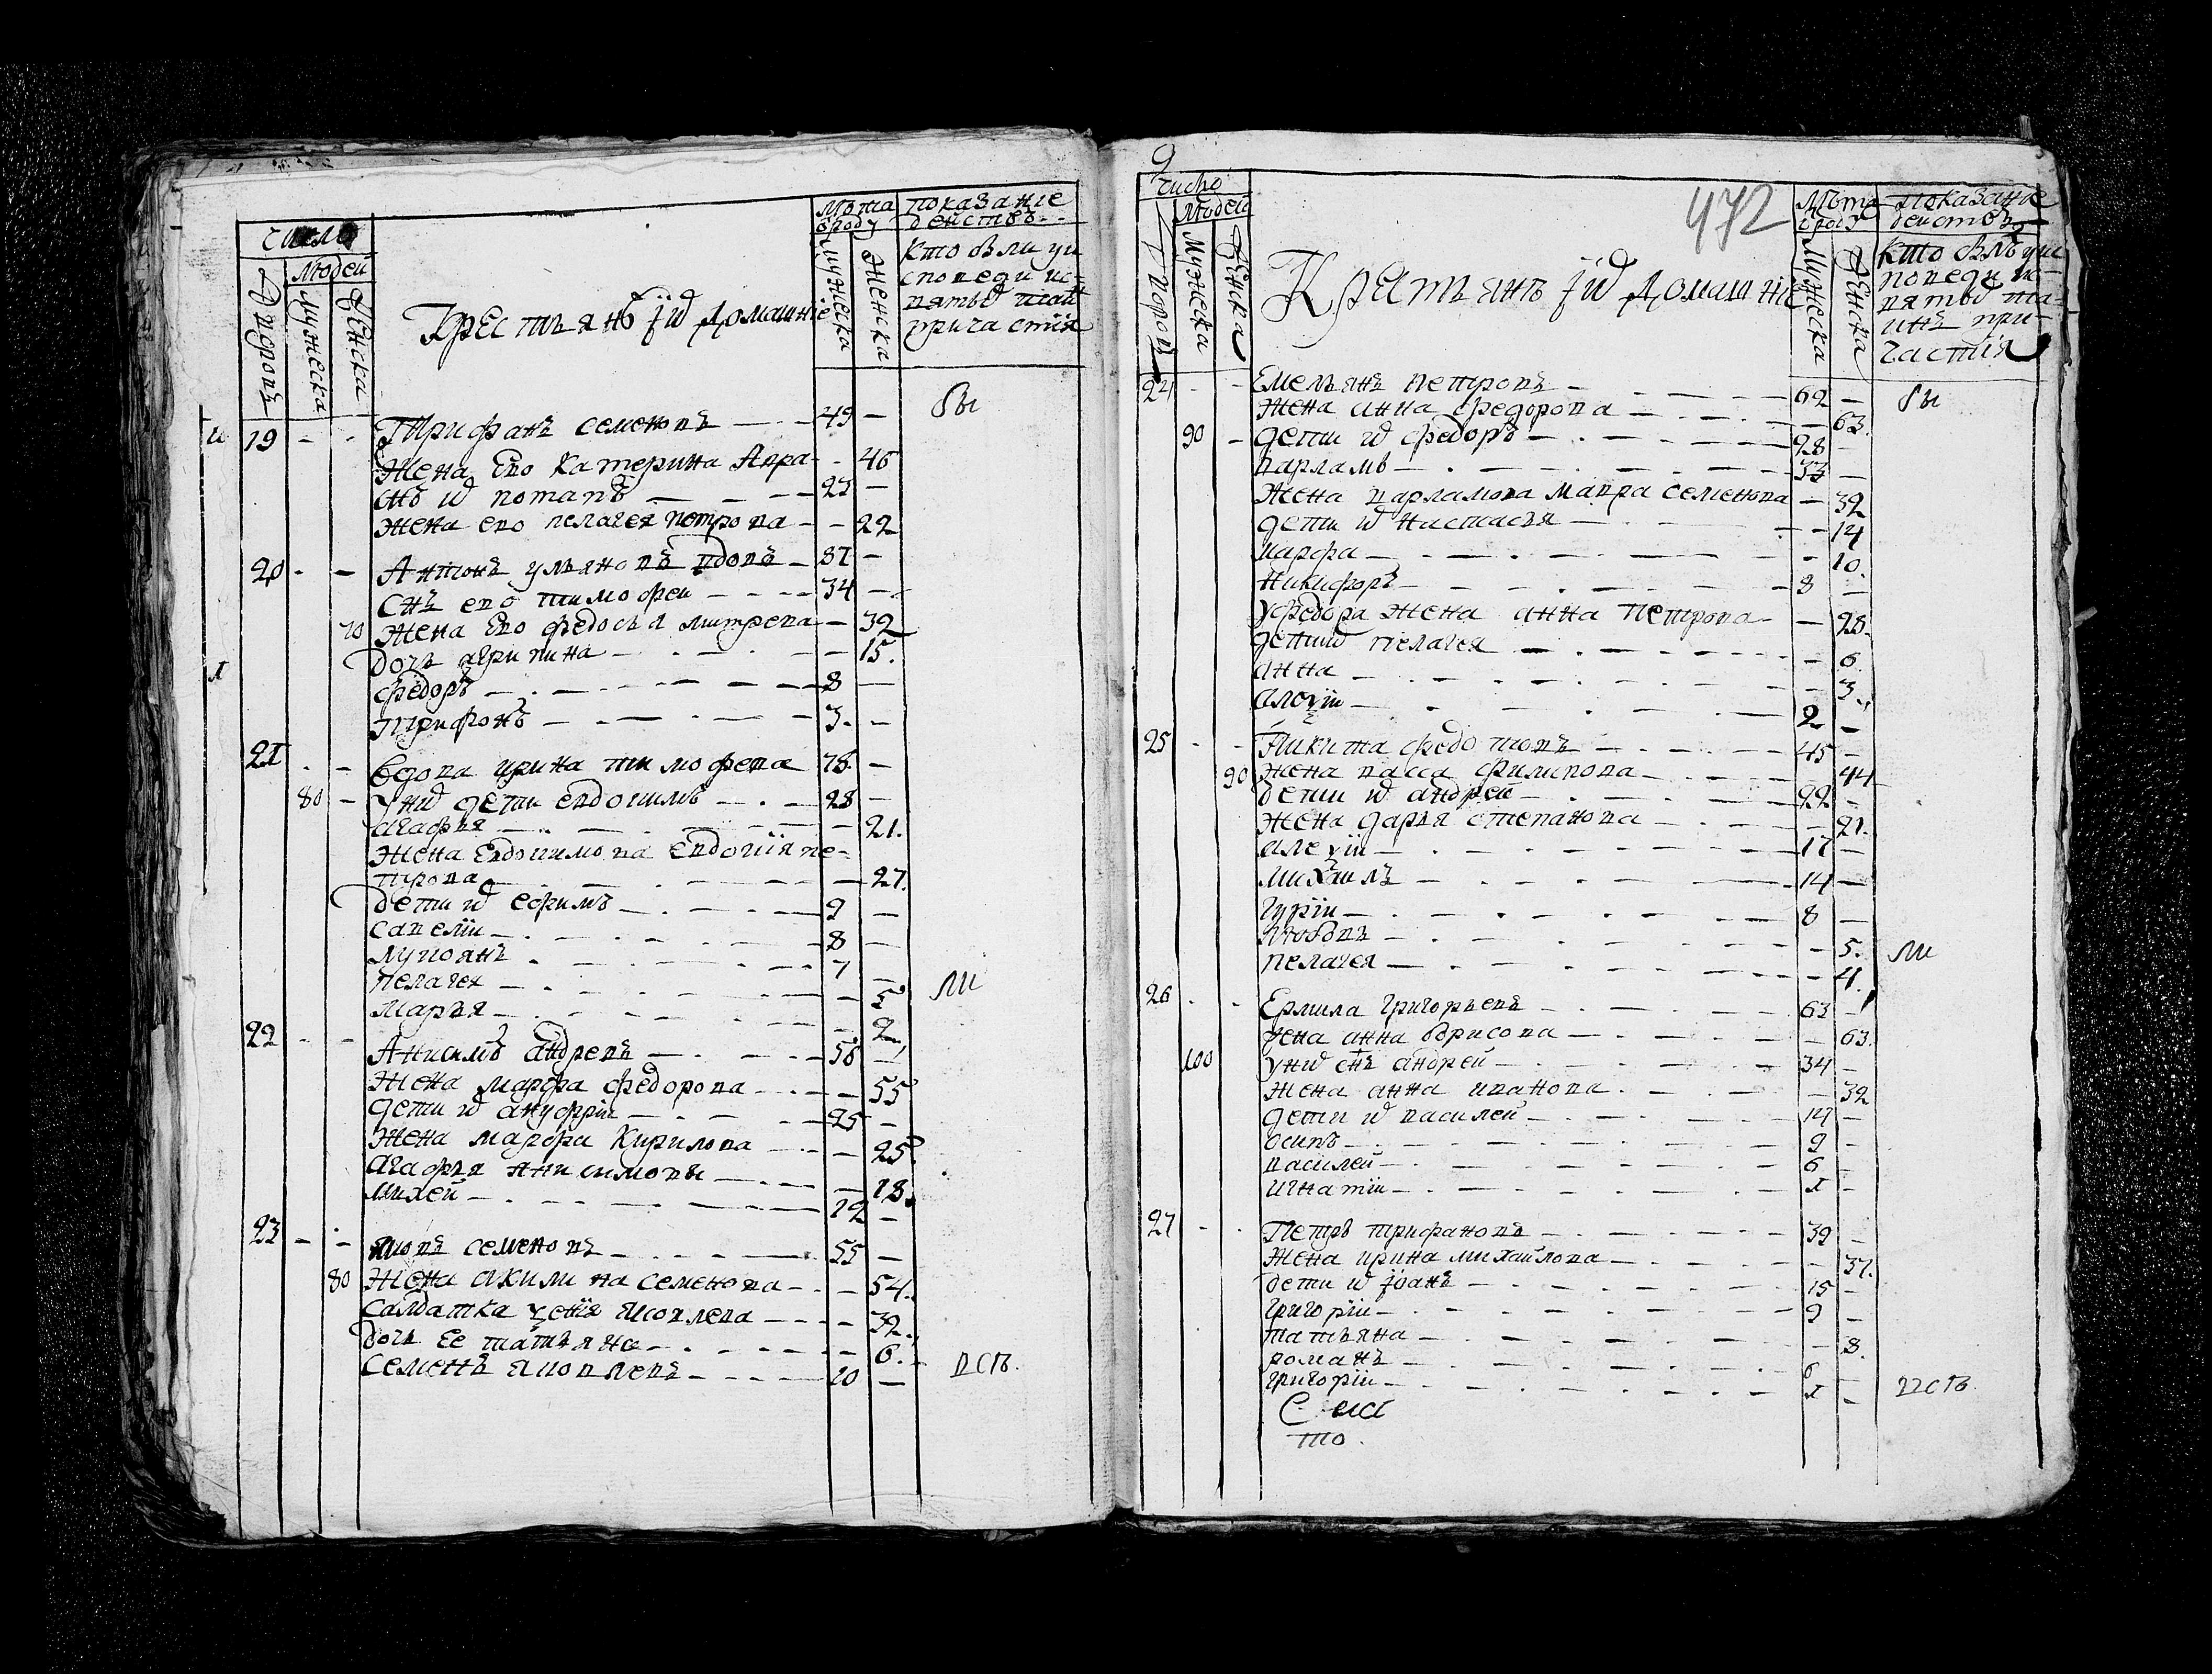 число
людей
дворовъ
мужеска
женска
Крестьянъ и ихъ домашнiе
лѣта
ѿ роду
мужеска
женска
показанiе
действъ
кто были у и
споведи и с
вятых таи
причастия
19 - - Трифанъ семеновъ 49 -
Жена Ево катерина Авра- - 46
снъ их потапъ 23 -
жена ево пелагея петрова - 22
20 - - Антонъ ульяновъ вдовъ 87 -
Снъ ево тимофеи 34 -
70 Жена Ево федосья митрева - 32
дочь агрипина - 15
федоръ 8 -
трифонъ 3 -
21 - - Вдова ирина тимофева 78 -
80 - у них дети евдокимъ 28 -
агафья - 21
Жена Евдокимова Евдокия пе-
трова - 27
дети их ефимъ 9 -
савелiи 8 -
лупоянъ 7 -
пелагея - 5
Марья - 2
22 - - Анисимъ андревъ 56 -
Жена марфа федорова - 55
дети их ануфрiи 25 -
Жена марфа Кирилова - 25
агафья анисимовы - 18
михей 12 -
23 - - Яковъ семеновъ 55 -
80 Жена акилина семенова - 54
салдатка ѯенiя яковлева - 32
дочь Ее татьяна - 6
Семенъ яковлевъ 20 -
бы
ли
всѣ
9
472
число
людей
дворовъ
мужеска
женска
Крестьянъ и ихъ домашнiе
лѣта
ѿ роду
мужеска
женска
показание
действъ
кто былъ у ис
поведи и с
вятых та
инъ при-
частiя
24 - - Емельянъ петровъ 62 -
Жена анна федорова - 63
90 - дети их федоръ 28 -
варламъ 33 -
Жена варламова мавра семенова - 32
дети их настасья - 14
марфа - 10
Никифоръ 8 -
У федора жена анна петрова - 28
дети их пелагея - 6
анна - 3
алеѯiи 2 -
25 - - Никита федотовъ 45 -
90 Жена васса филипова - 44
дети их андреи 22 -
Жена дарья степанова - 21
алеѯiи 17 -
михаилъ 14 -
Гурiи 8 -
Любовъ - 5
пелагея - 4
26 - - Ермила Григорьевъ 63 -
жена анна борисова - 63
100 у них снъ андрей 34 -
жена анна иванова - 32
дети их василей 14 -
осипъ 9 -
василей 6 -
игнатiи 1 -
27 - - Петръ трифановъ 39 -
Жена ирина михаилова - 37
дети их iванъ 15 -
григорiи 9 -
татьяна - 8
романъ 6 -
григорiи 1 -
бы
ли
всѣ